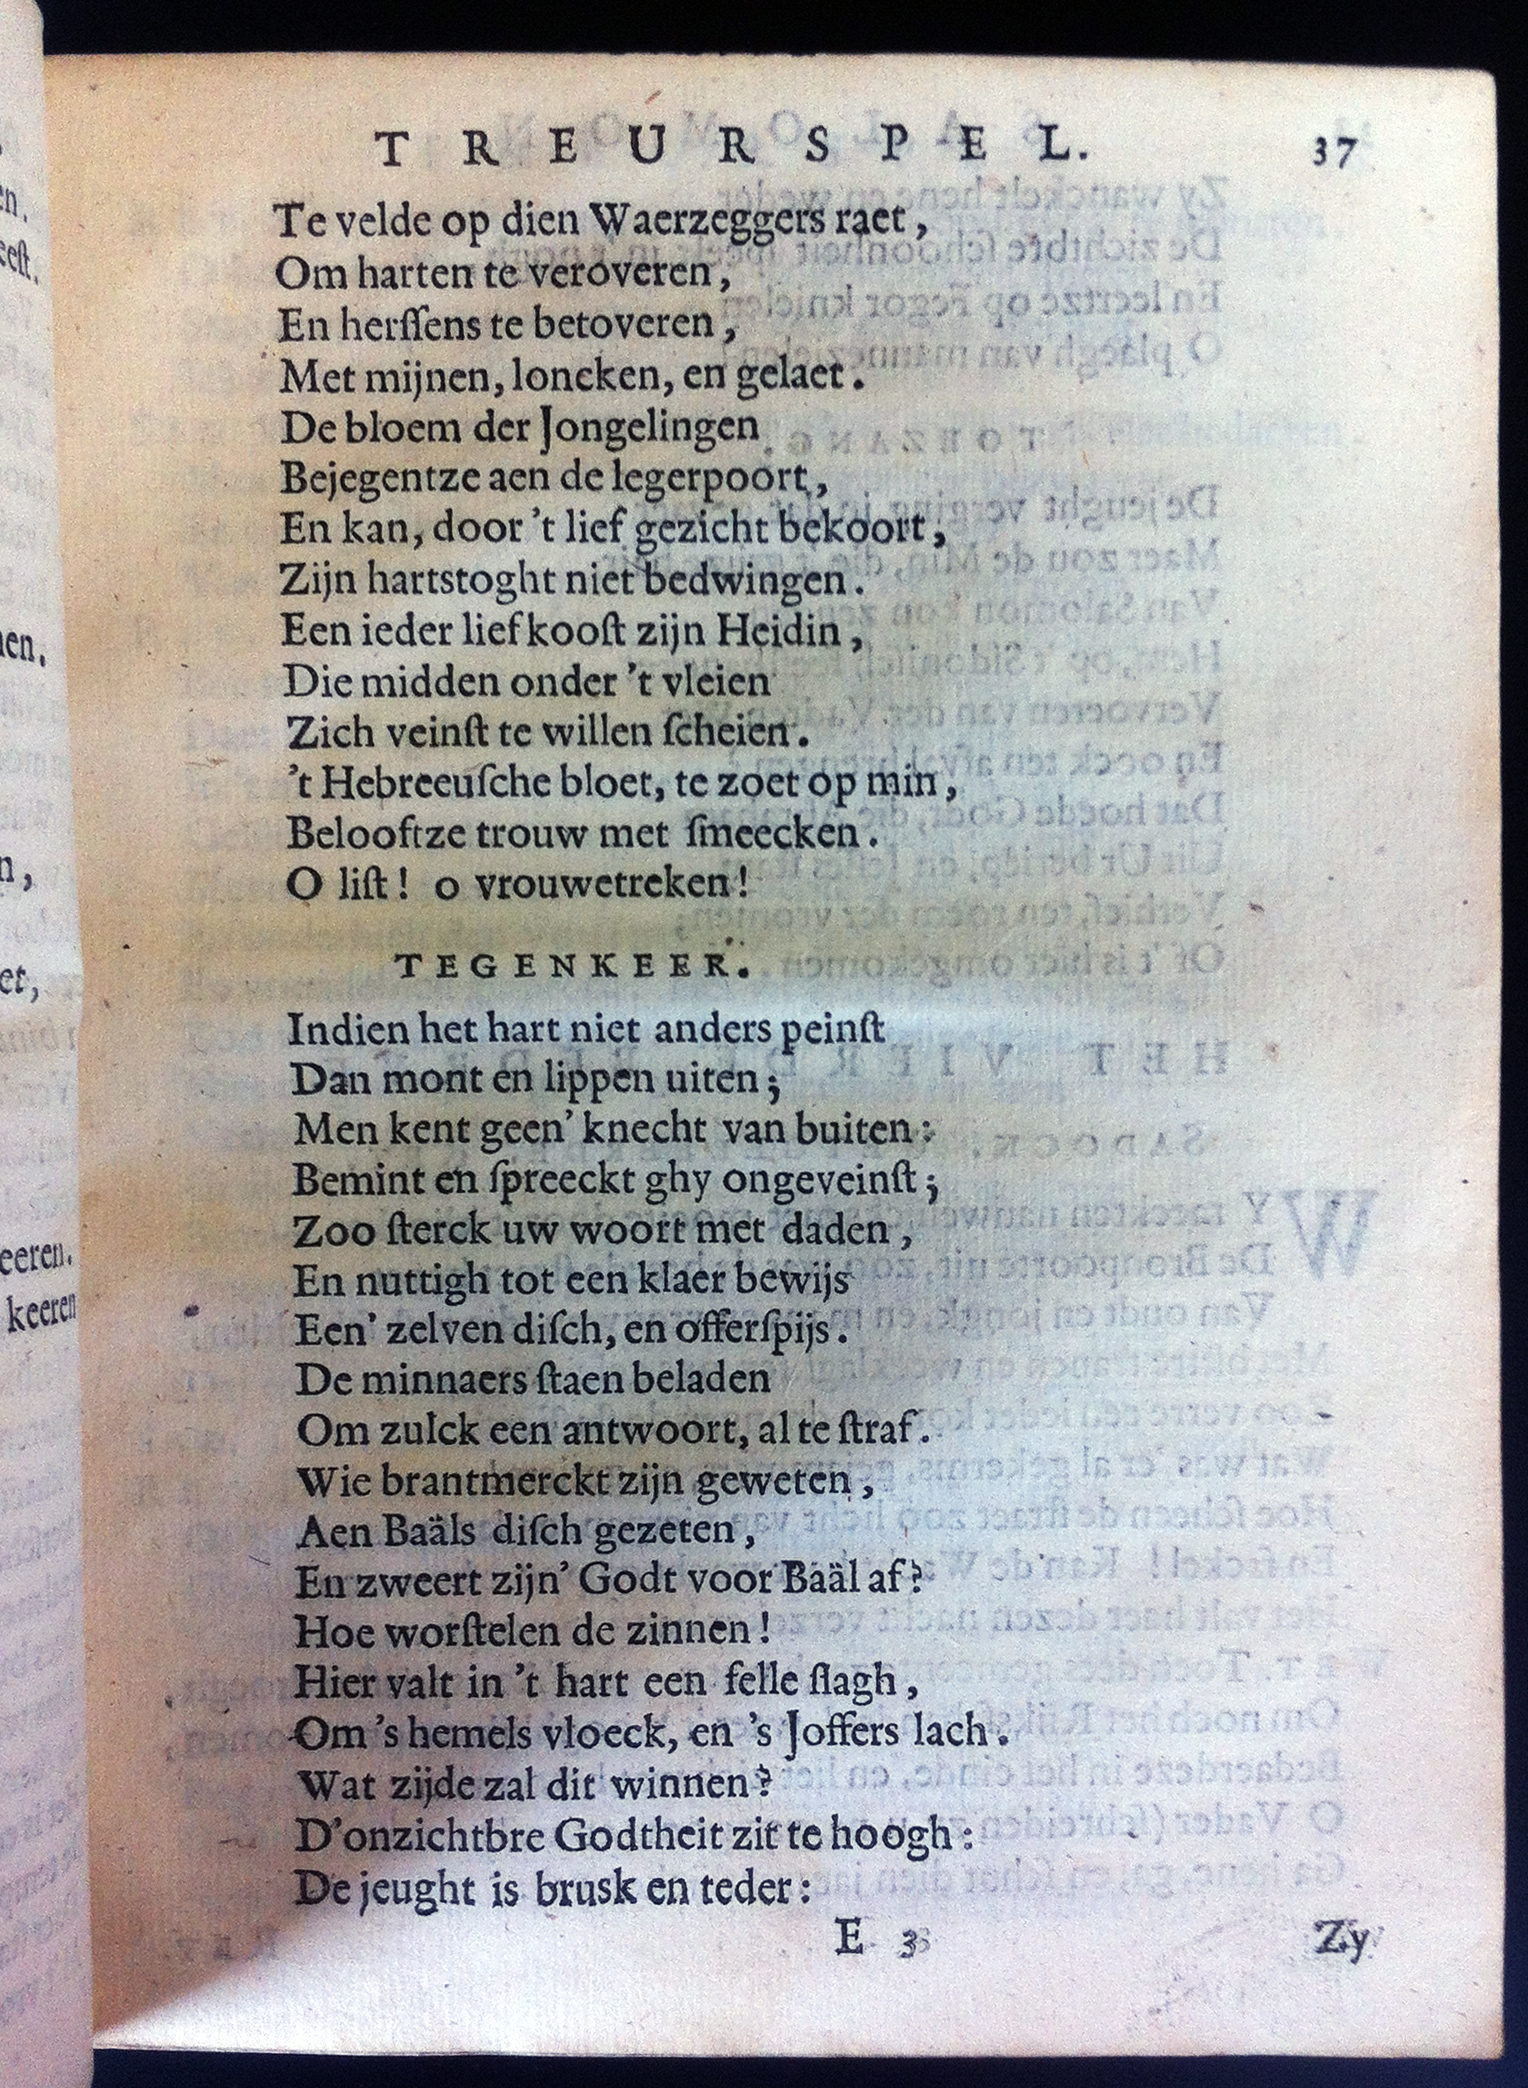 TREURSPEL. 37
Te velde op dien Waerzeggers raet,
Om harten te veroveren,
En herſſens te betoveren,
Met mijnen, loncken, en gelaet.
De bloem der Jongelingen
Bejegentze aen de legerpoort,
En kan, door 't lief gezicht bekoort,
Zijn hartstoght niet bedwingen.
Een ieder liefkooſt zijn Heidin,
Die midden onder 't vleien
Zich veinſt te willen ſcheien.
't Hebreeuſche bloet, te zoet op min,
Belooftze trouw met ſmeecken.
O liſt! o vrouwetreken!
TEGENKEER.
Indien het hart niet anders peinſt
Dan mont en lippen uiten;
Men kent geen' knecht van buiten:
Bemint en ſpreeckt ghy ongeveinſt;
Zoo ſterck uw woort met daden,
En nuttigh tot een klaer bewijs
Een' zelven diſch, en offerſpijs.
De minnaers ſtaen beladen
Om zulck een antwoort, al te ſtraf.
Wie brantmerckt zijn geweten,
Aen Baäls diſch gezeten,
En zweert zijn' Godt voor Baäl af?
Hoe worſtelen de zinnen!
Hier valt in 't hart een felle ſlagh,
Om 's hemels vloeck, en 's Joffers lach.
Wat zijde zal dit winnen?
D'onzichtbre Godtheit zit te hoogh:
De jeught is brusk en teder:
E 3 Zy